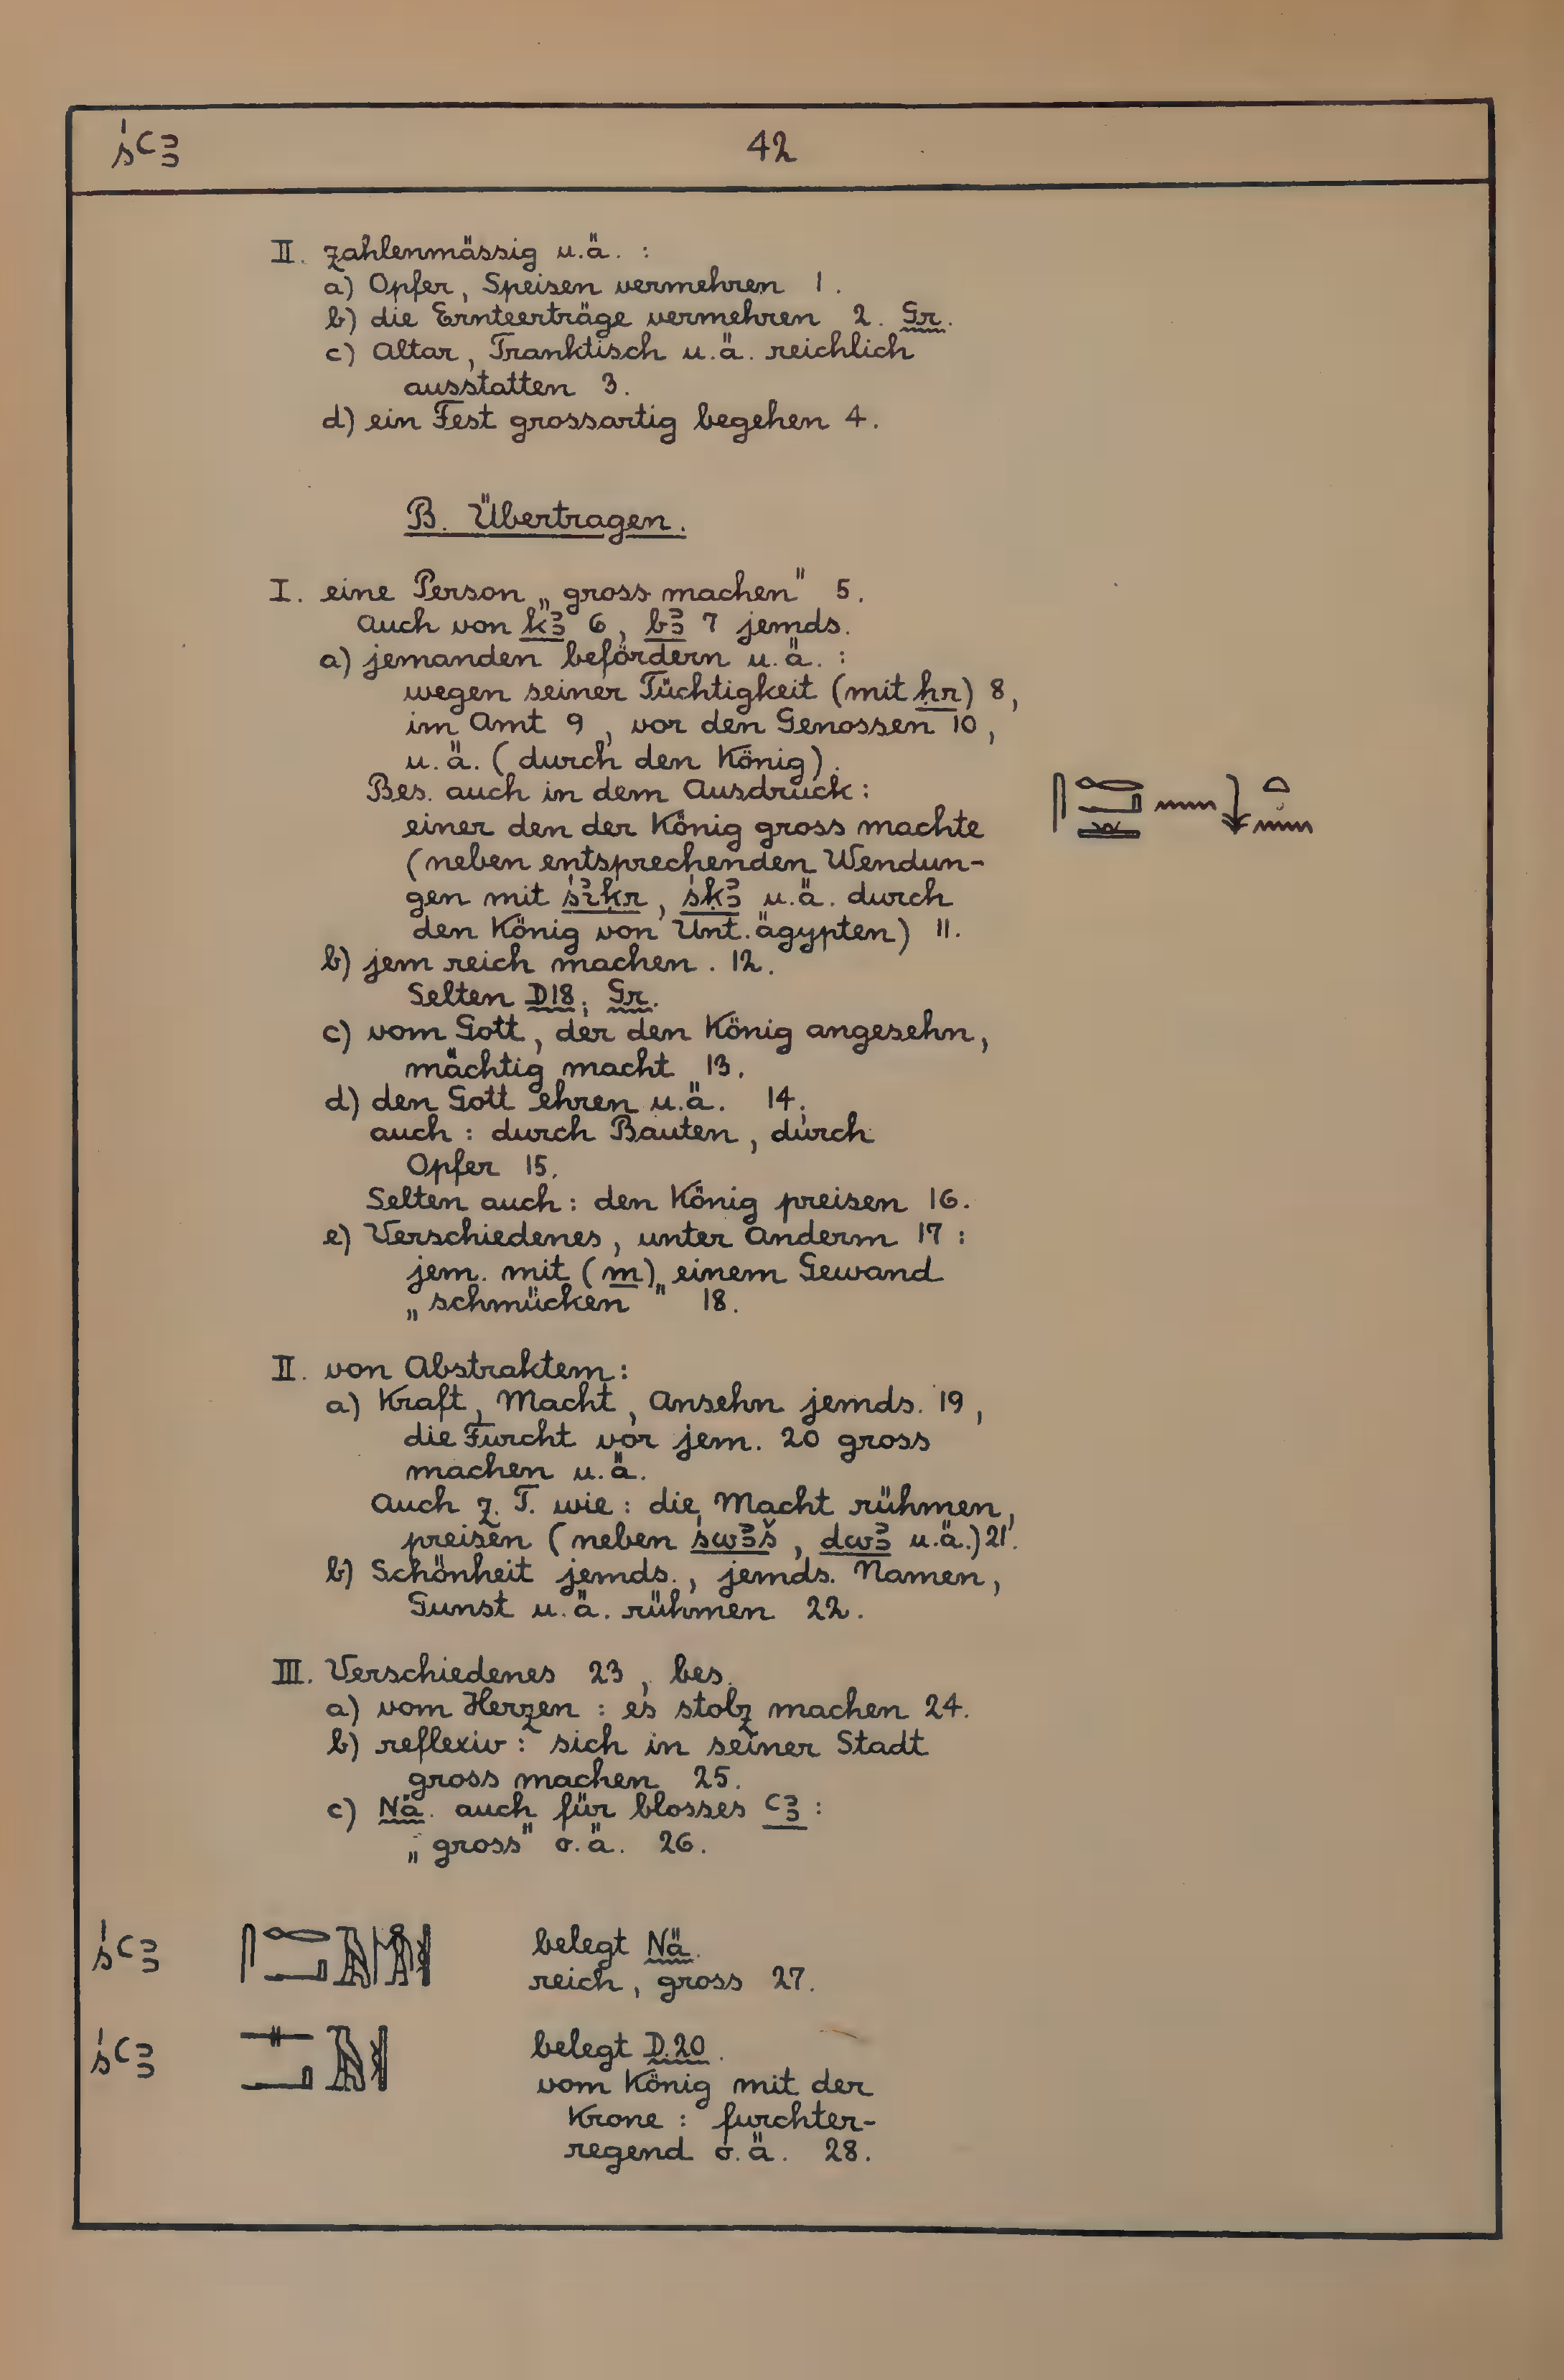 śꜥꜣ 42
II. zahlenmässig u.ä. :
a) Opfer, Speisen vermehren 1.
b) die Ernteerträge vermehren 2. Gr.
c) Altar, Tranktisch u.ä. reichlich
ausstatten 3.
d) ein Fest grossartig begehen 4.
B. Übertragen.
I. eine Person „gross machen" 5.
Auch von kꜣ 6, bꜣ 7 jemds.
a) jemanden befördern u.ä. :
wegen seiner Tüchtigkeit (mit ḥr) 8,
im Amt 9, vor den Genossen 10,
u.ä. (durch den König).
Bes. auch in dem Ausdruck:
einer den der König gross machte
(neben entsprechenden Wendun-
gen mit śỉḳr, śḳꜣ u.ä. durch
den König von Unt.ägypten) 11.
b) jem reich machen. 12.
Selten D18; Gr.
c) vom Gott, der den König angesehn,
mächtig macht 13.
d) den Gott ehren u.ä. 14;
auch: durch Bauten, durch
Opfer 15.
Selten auch: den König preisen 16.
e) Verschiedenes, unter Anderm 17:
jem. mit (m) einem Gewand
„schmücken" 18.
II. von Abstraktem:
a) Kraft, Macht, Ansehn jemds. 19,
die Furcht vor jem. 20 gross
machen u.ä.
Auch z. T. wie: die Macht rühmen,
preisen (neben śwꜣš, dwꜣ u.ä.) 21.
b) Schönheit jemds., jemds. Namen,
Gunst u.ä. rühmen 22.
III. Verschiedenes 23, bes.
a) vom Herzen: es stolz machen 24.
b) reflexiv: sich in seiner Stadt
gross machen 25.
c) Nä. auch für blosses ꜥꜣ:
„gross" o.ä. 26.
śꜥꜣ belegt Nä.
reich, gross 27.
śꜥꜣ belegt D.20.
vom König mit der
Krone: furchter-
regend o.ä. 28.